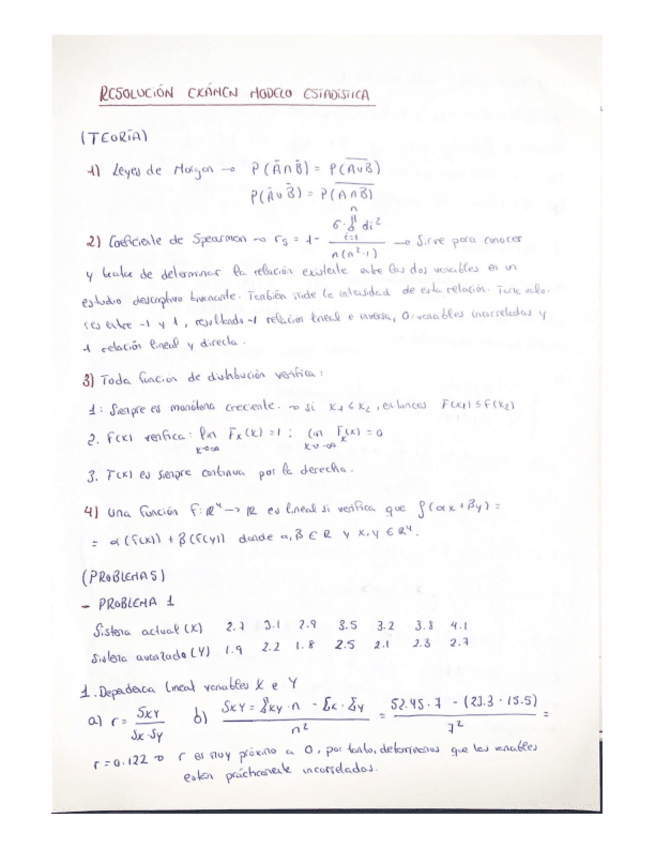 RESOLUCIÓN EXÁMEN MODELO ESTADÍSTICA
(TEORÍA)
1) Leyes de Morgan → P(Ā∩B̄) = P(\overline{A∪B})
P(Ā∪B̄) = P(\overline{A∩B})
2) Coeficiente de Spearman → r_s = 1 - \frac{6·∑_{i=1}^{n} di²}{n(n²-1)} → Sirve para conocer
y tratar de determinar la relación existente entre las dos variables en un
estudio descriptivo bivariante. También mide la intensidad de esta relación. Tiene valo-
res entre -1 y 1, resultado -1 relación lineal e inversa, 0: variables incorreladas y
1 relación lineal y directa.
3) Toda función de distribución verifica:
1: Siempre es monótona creciente. → si x₁ ≤ x₂, entonces F(x₁) ≤ F(x₂)
2. F(x) verifica: lim_{x→∞} F_x(x) = 1 ; lim_{x→-∞} F_x(x) = 0
3. F(x) es siempre continua por la derecha.
4) Una función f: ℝ⁴ → ℝ es lineal si verifica que f(αx + βy) =
= α(f(x)) + β(f(y)) donde α, β ∈ ℝ y x, y ∈ ℝ⁴.
(PROBLEMAS)
- PROBLEMA 1
Sistema actual (X) 2.7 3.1 2.9 3.5 3.2 3.8 4.1
Sistema avanzado (Y) 1.9 2.2 1.8 2.5 2.1 2.3 2.7
1. Dependencia lineal variables X e Y
a) r = \frac{Sxy}{Sx·Sy} b) \frac{Sxy = ∑xy·n - ∑x·∑y}{n²} = \frac{52.45·7 - (23.3·15.5)}{7²} =
r = 0.122 → r es muy próximo a 0, por tanto, determinamos que las variables
están prácticamente incorreladas.